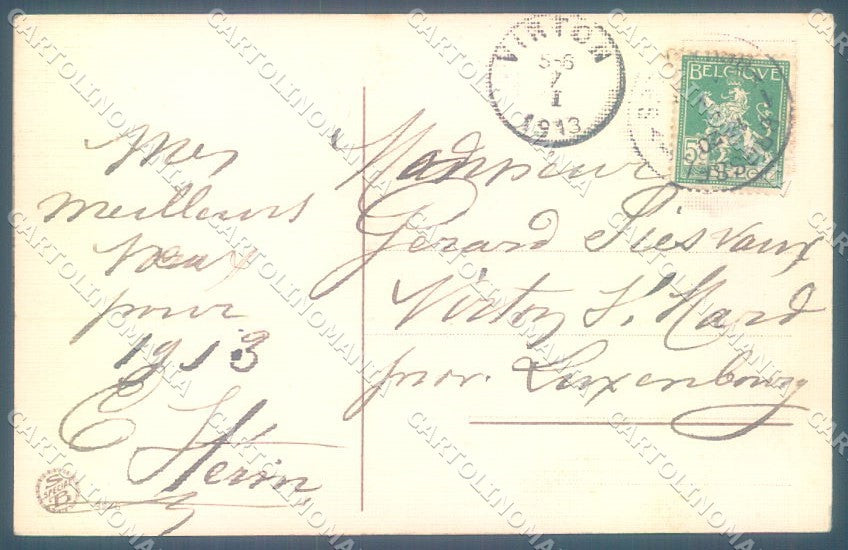 Mes
meilleurs
Vœux
pour
1913
E
Monsieur
Gérard
Virton St Mard
prov. Luxembourg
VIRTON
5-6
1
I
1913
BELGIQUE
5
SPECIAL
CARTOLINOMANIA